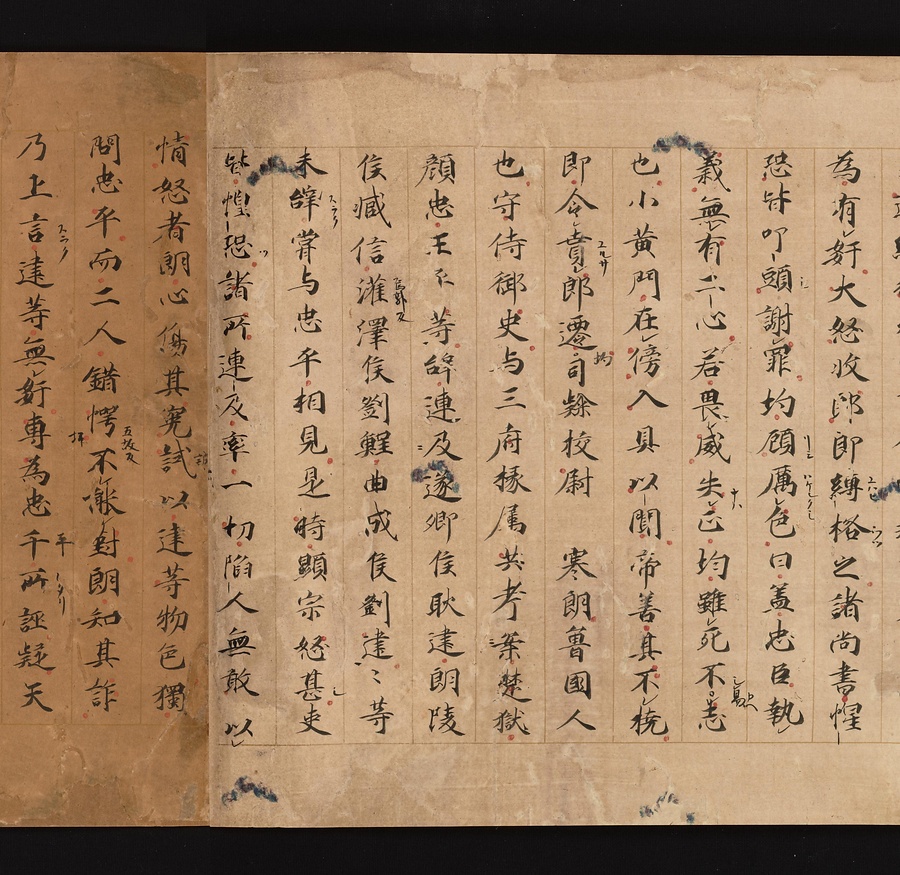 為有姧大怒收郎即縛格之諸尚書惶
恐皆叩頭謝罪均顧厲色曰蓋忠臣執
義無有二心若畏威失正均雖死不志
也小黄門在傍入具以聞帝善其不撓
即令貰郎遷司隸校尉　寒朗魯國人
也守侍御史与三府掾属共考案楚獄
顔忠王平等辭連及遂卿侯耿建朗陵
侯臧信濩澤侯劉鯉曲成侯劉建〻等
未辭甞与忠平相見是時顯宗怒甚吏
皆惶恐諸所連及率一切陷人無敢以
情怒者朗心傷其寃試以建等物色獨
問忠平而二人錯愕不能對朗知其詐
乃上言建等無姧專為忠千所誣疑天